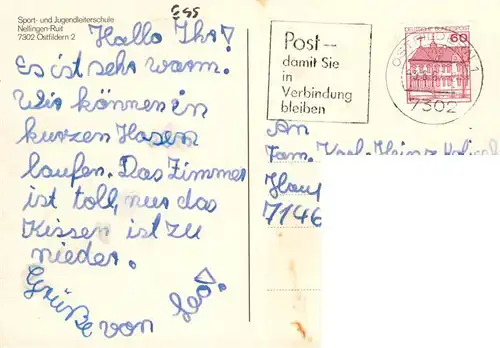 Sport- und Jugendleiterschule
Nellingen-Ruit
7302 Ostfildern 2
Hallo Ihr!
Es ist sehr warm.
Wir können in
kurzen Hosen
laufen. Das Zimmer
ist toll, nur das
Kissen ist zu
nieder.
Grüße von
Post –
damit Sie
in
Verbindung
bleiben
DEUTSCHE BUNDESPOST
60
7302
An
Fam. Karl-Heinz
7146